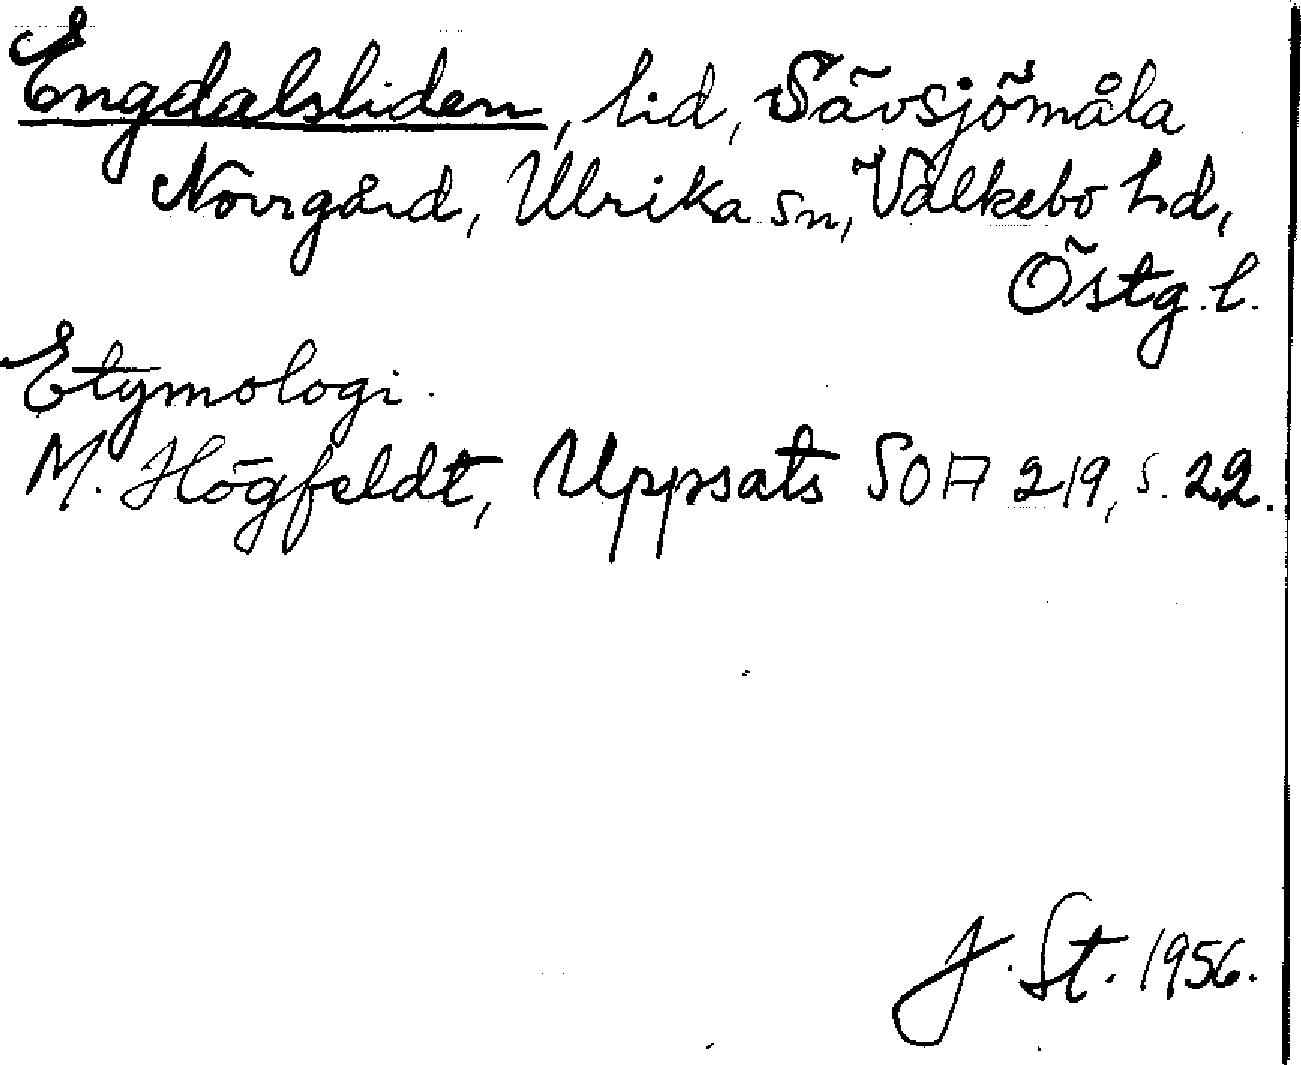 Engdalsliden, lid, Sävsjömåla
Norrgård, Ulrika sn, Valkebo hd,
Östg. l.
Etymologi.
M. Högfeldt, Uppsats SOA 219, s. 22.
J. St. 1956.